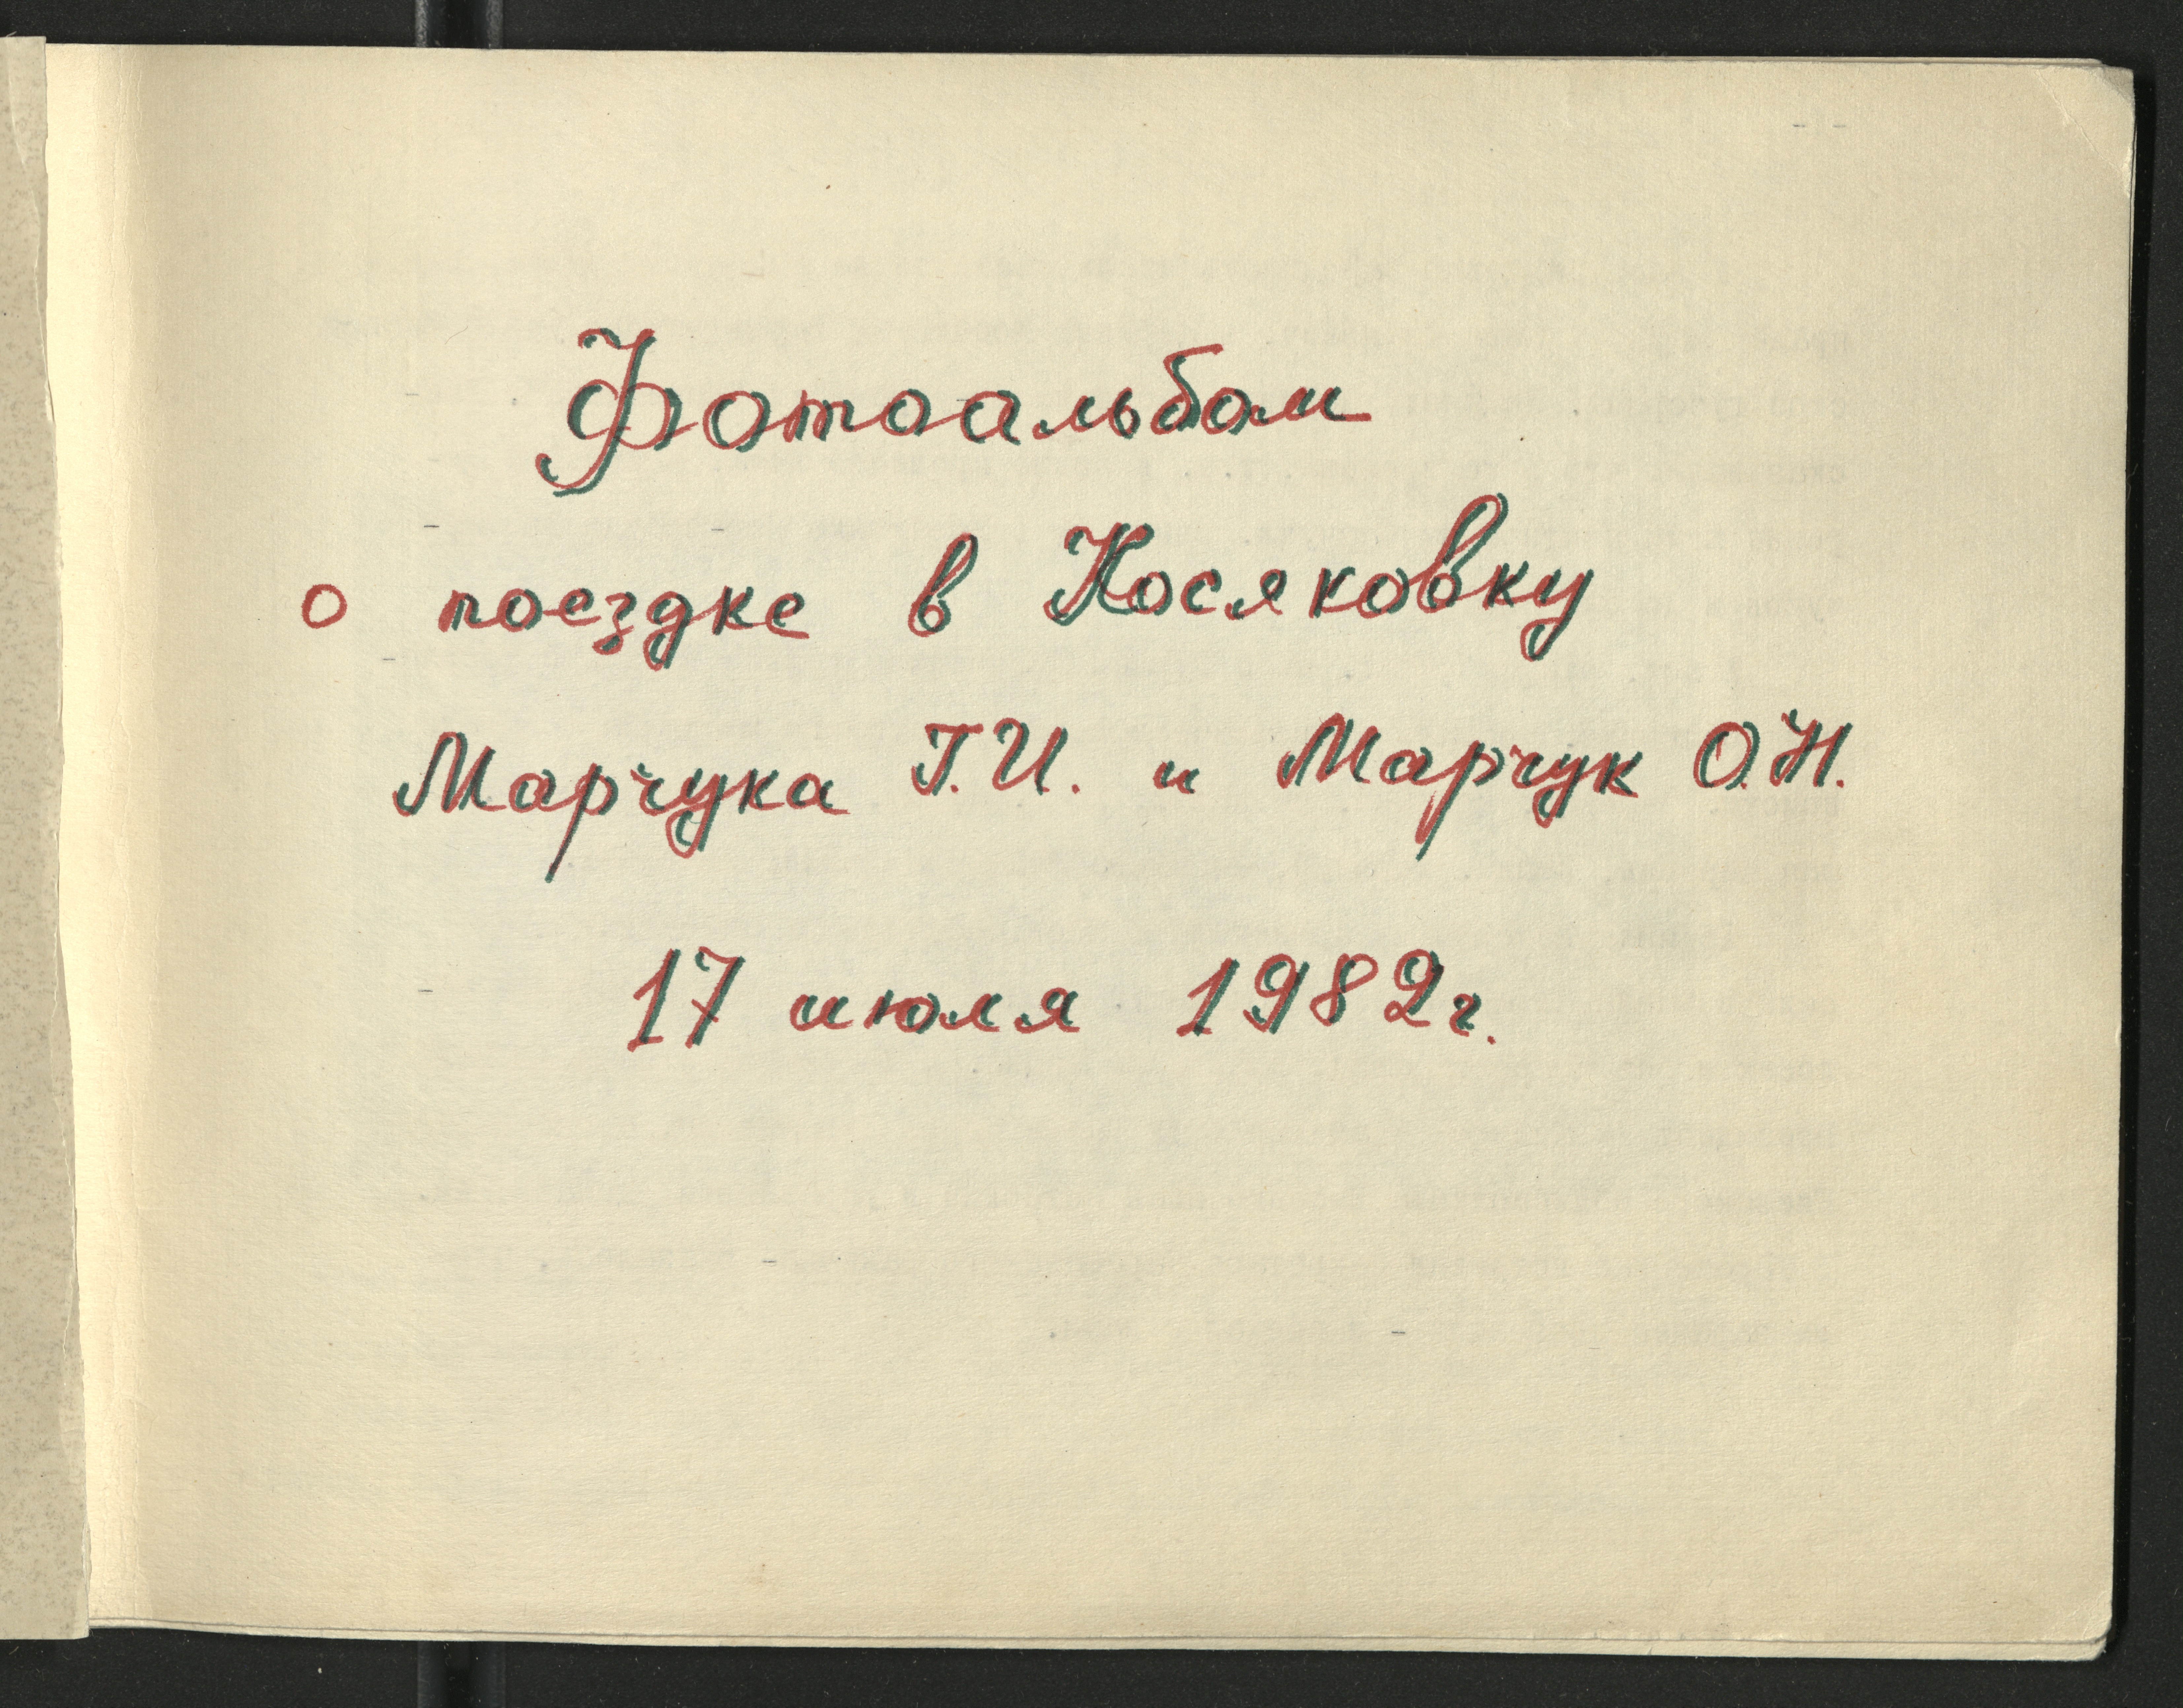 Фотоальбом
о поездке в Косяковку
Марчука Г.И. и Марчук О.Н.
17 июля 1982г.